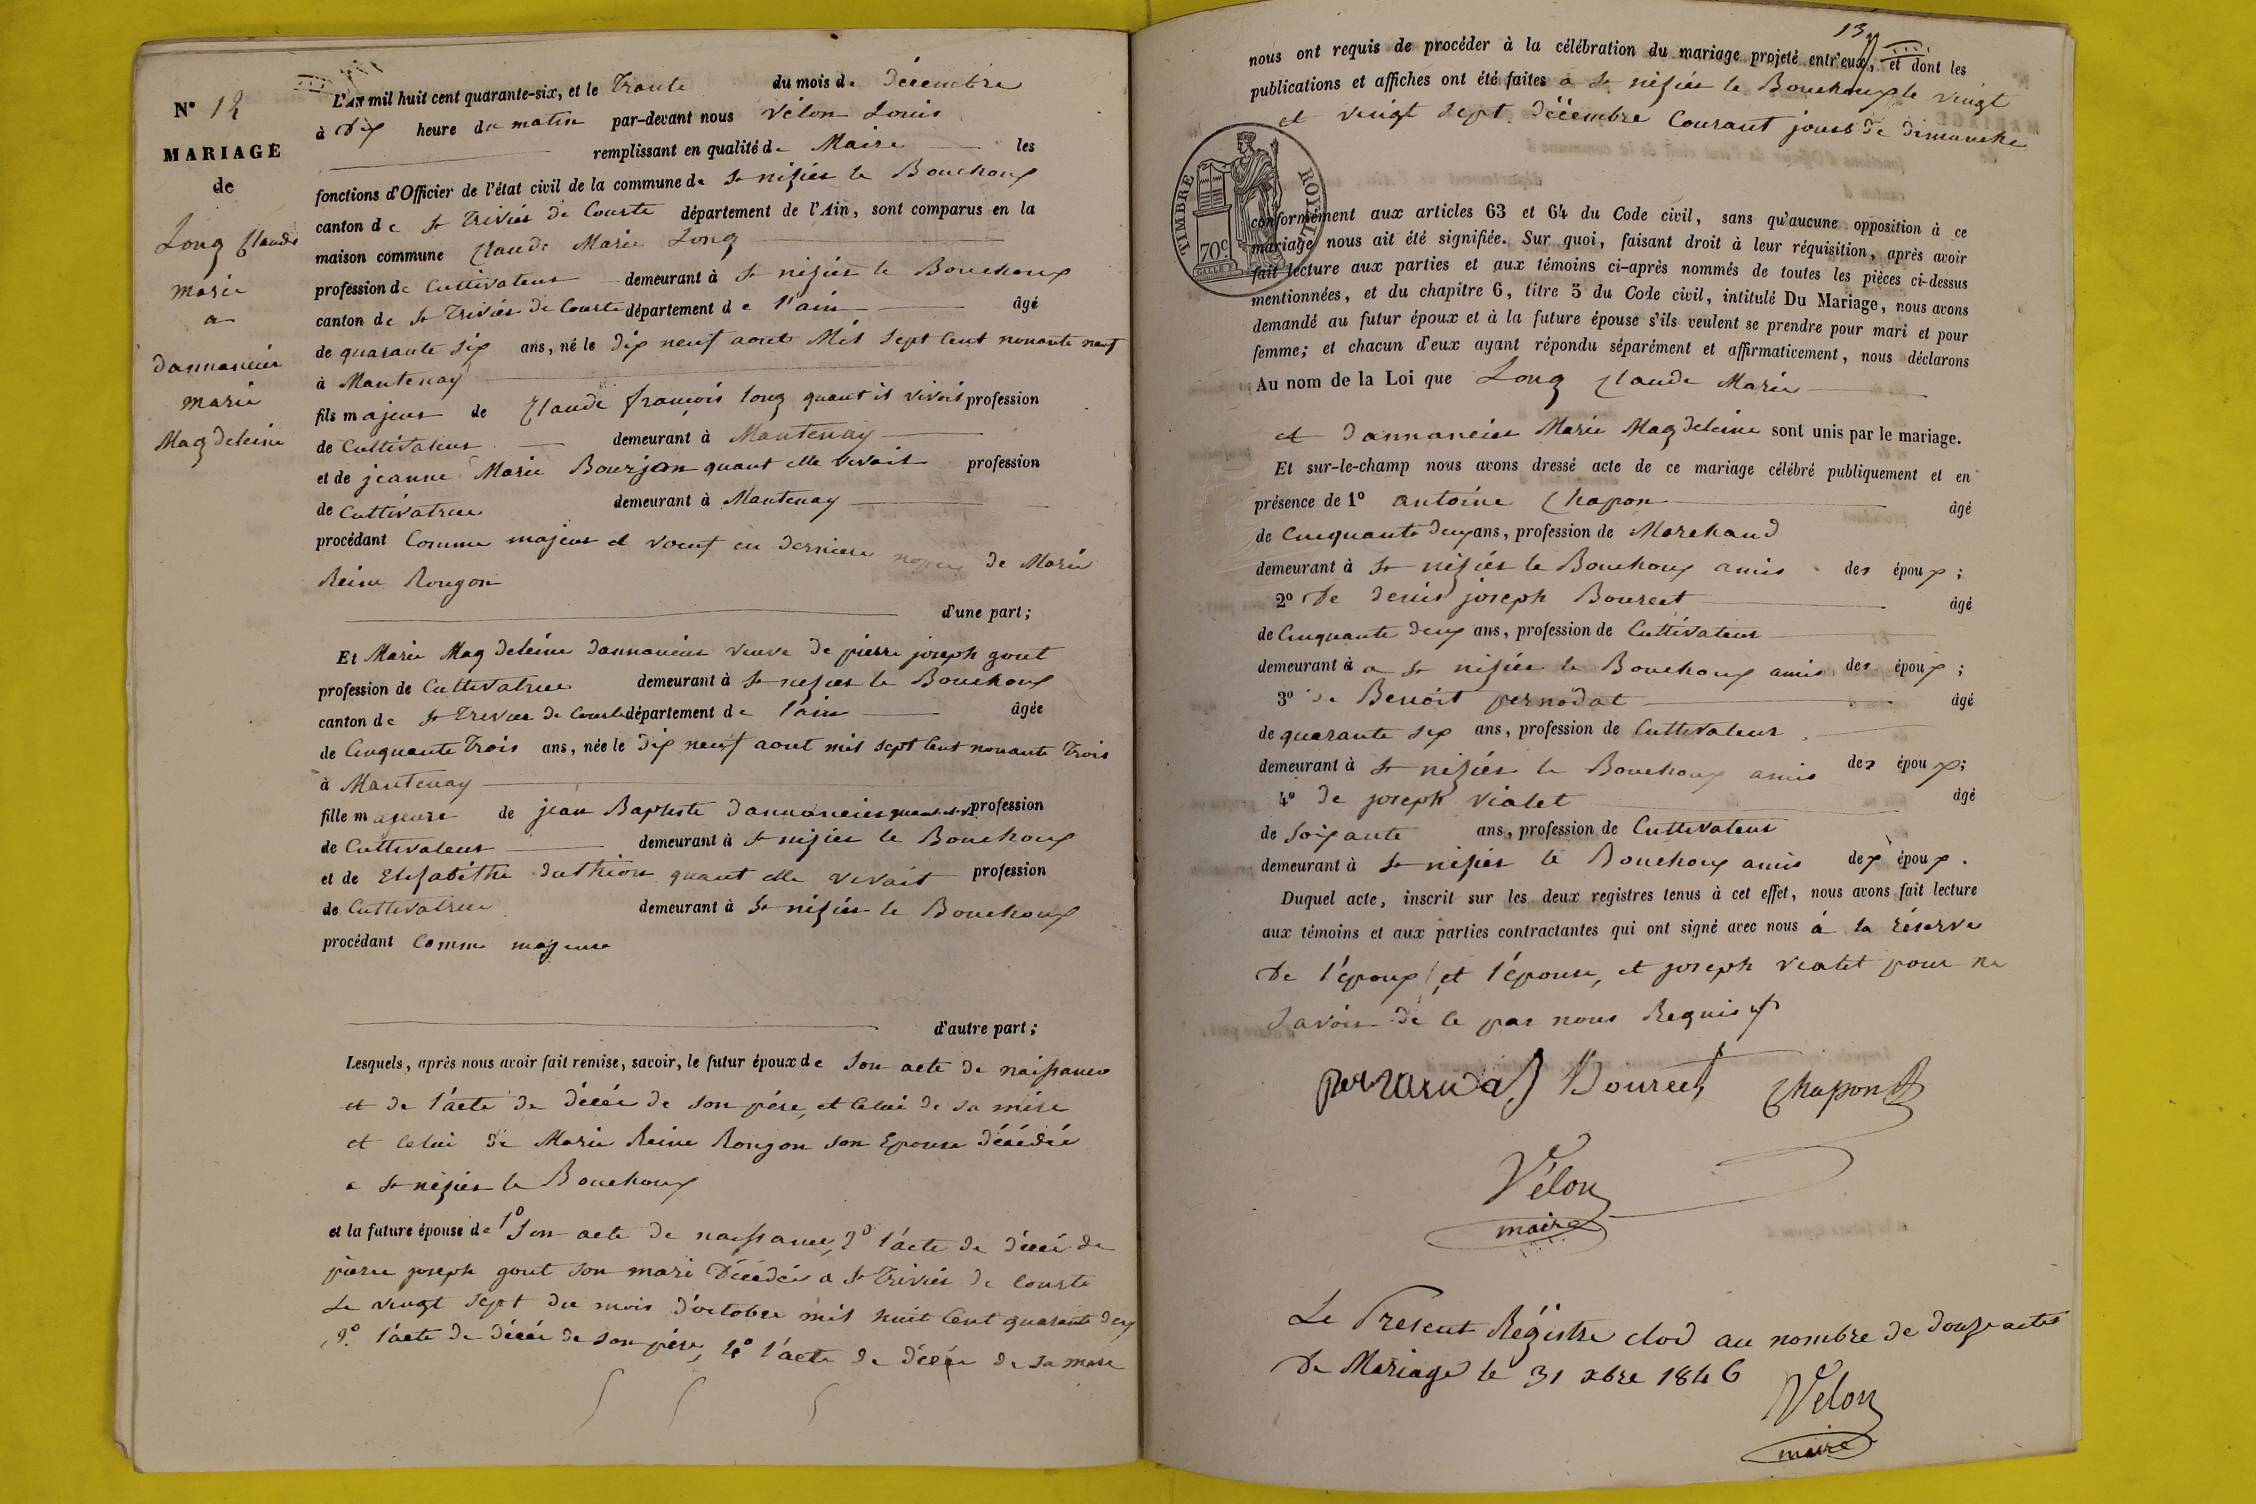 N° 12
MARIAGE
de
Long Claude
marie
a
dannancier
marie
Magdeleine
L'AN mil huit cent quarante-six, et le Trante du mois de décembre
à dix heure du matin par-devant nous Vélon Louis
remplissant en qualité de Maire les
fonctions d'Officier de l'état civil de la commune de St nizier le Bouchoux
canton de St Trivier de Courte département de l'Ain, sont comparus en la
maison commune Claude Marie Long
profession de Cultivateur demeurant à St nizier le Bouchoux
canton de St Trivier de Courte département de l'ain âgé
de quarante six ans, né le dix neuf aout Mil sept Cent nonante neuf
à Mantenay
fils majeur de Claude françois long quant il vivoit profession
de Cultivateur demeurant à Mantenay
et de jeanne Marie Bourjon quant elle vivait profession
de Cultivatrice demeurant à Mantenay
procédant Comme majeur et voeuf en derniere noces de Marie
Reine Rongon
d'une part;
Et Marie Magdeleine dannancier veuve de pierre joseph gout
profession de Cultivatrice demeurant à St nizier le Bouchoux
canton de St Trivier de Courte département de l'ain âgée
de Cinquante Trois ans, née le dix neuf aout mil sept Cent nonante Trois
à Mantenay
fille majeure de jean Baptiste dannancier profession
de Cultivateur demeurant à St nizier le Bouchoux
et de Elisabéthe duthion quant elle vivait profession
de Cultivatrice demeurant à St nizier le Bouchoux
procédant Comme majeure
d'autre part;
Lesquels, après nous avoir fait remise, savoir, le futur époux de Son acte de naissance
et de l'acte de décée de son pére, et Celui de sa mére
et Celui de Marie Reine Rongon son Epouse décédée
a St nizier le Bouchoux
et la future épouse de 1° Son acte de naissance, 2° l'acte de décée de
pierre joseph gout son mari Décédée a St Trivier de Courte
Le vingt sept du mois d'octobre mil huit Cent quarante deux
3° l'acte de décée de son pére, 4° l'acte de décée de sa mere
13
nous ont requis de procéder à la célébration du mariage projeté entr'eux, et dont les
publications et affiches ont été faites a St nizier le Bouchoux le vingt
et vingt sept décembre Courant jours de dimanche
TIMBRE ROYAL
70c.
conformément aux articles 63 et 64 du Code civil, sans qu'aucune opposition à ce
mariage nous ait été signifiée. Sur quoi, faisant droit à leur réquisition, après avoir
fait lecture aux parties et aux témoins ci-après nommés de toutes les pièces ci-dessus
mentionnées, et du chapitre 6, titre 5 du Code civil, intitulé Du Mariage, nous avons
demandé au futur époux et à la future épouse s'ils veulent se prendre pour mari et pour
femme; et chacun d'eux ayant répondu séparément et affirmativement, nous déclarons
Au nom de la Loi que Long Claude Marie
et dannancier Marie Magdeleine sont unis par le mariage.
Et sur-le-champ nous avons dressé acte de ce mariage célébré publiquement et en
présence de 1° antoine Chapon âgé
de Cinquante deux ans, profession de Marchand
demeurant à St nizier le Bouchoux amis des époux;
2° De denis joseph Bourcet âgé
de Cinquante deux ans, profession de Cultivateur
demeurant à a St nizier le Bouchoux amis des époux;
3° de Benoit pernodat âgé
de quarante six ans, profession de Cultivateur
demeurant à St nizier le Bouchoux amis des époux;
4° de joseph vialet âgé
de Soixante ans, profession de Cultivateur
demeurant à St nizier le Bouchoux amis des époux.
Duquel acte, inscrit sur les deux registres tenus à cet effet, nous avons fait lecture
aux témoins et aux parties contractantes qui ont signé avec nous à la réserve
De l'époux, et l'épouse, et joseph vialet pour ne
Savoir de ce par nous Requis
Bourcet Chapon
Vélon
maire
Le Present Régistre clod au nombre de douze actes
De Mariage le 31 xbre 1846
Vélon
maire